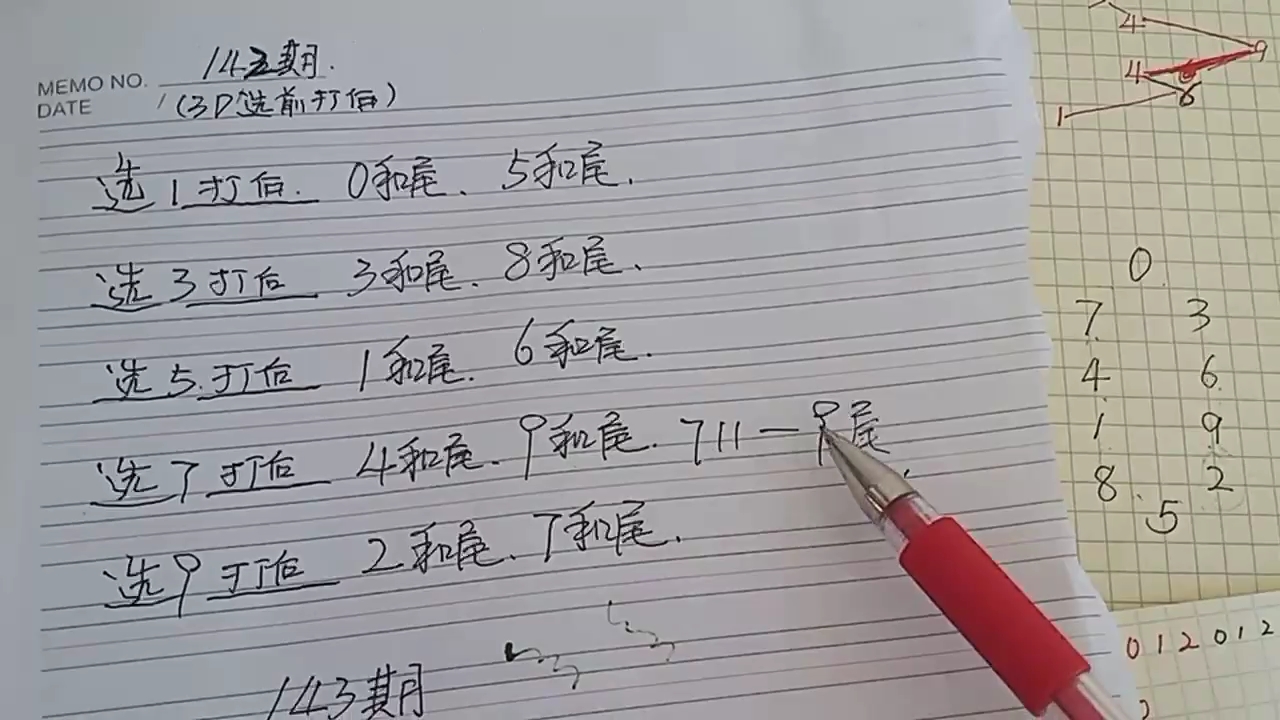 MEMO NO. 142期.
DATE / (3D选前打后)
选1打后. 0和尾. 5和尾.
选3打后 3和尾. 8和尾.
选5.打后 1和尾. 6和尾.
选7打后 4和尾. 9和尾. 711—9尾
选9打后 2和尾. 7和尾.
143期
4
9
4
8
1
0
7 3
4 6
1 9
8 2
5
0 1 2 0 1 2